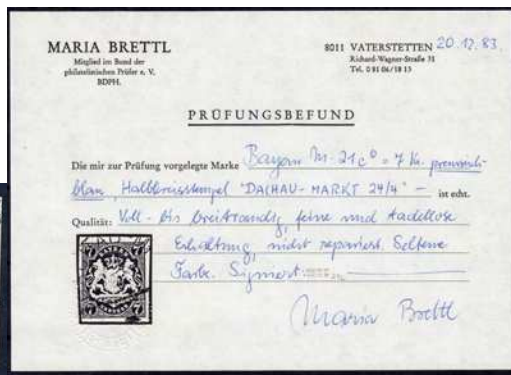 MARIA BRETTL
Mitglied im Bund der
philatelistischen Prüfer e. V.
BDPH.
8011 VATERSTETTEN 20.12.83.
Richard-Wagner-Straße 31
Tel. 0 81 06 / 18 13
PRÜFUNGSBEFUND
Die mir zur Prüfung vorgelegte Marke Bayern Nr. 21c° = 7 Kr. preussisch-
blau, Halbkreisstempel "DACHAU-MARKT 24/4" - ist echt.
Qualität: Voll- bis breitrandig, feine und tadellose
Erhaltung, nicht repariert. Seltene
Farbe. Signiert:
BAYERN
7 7
7 7
Maria Brettl